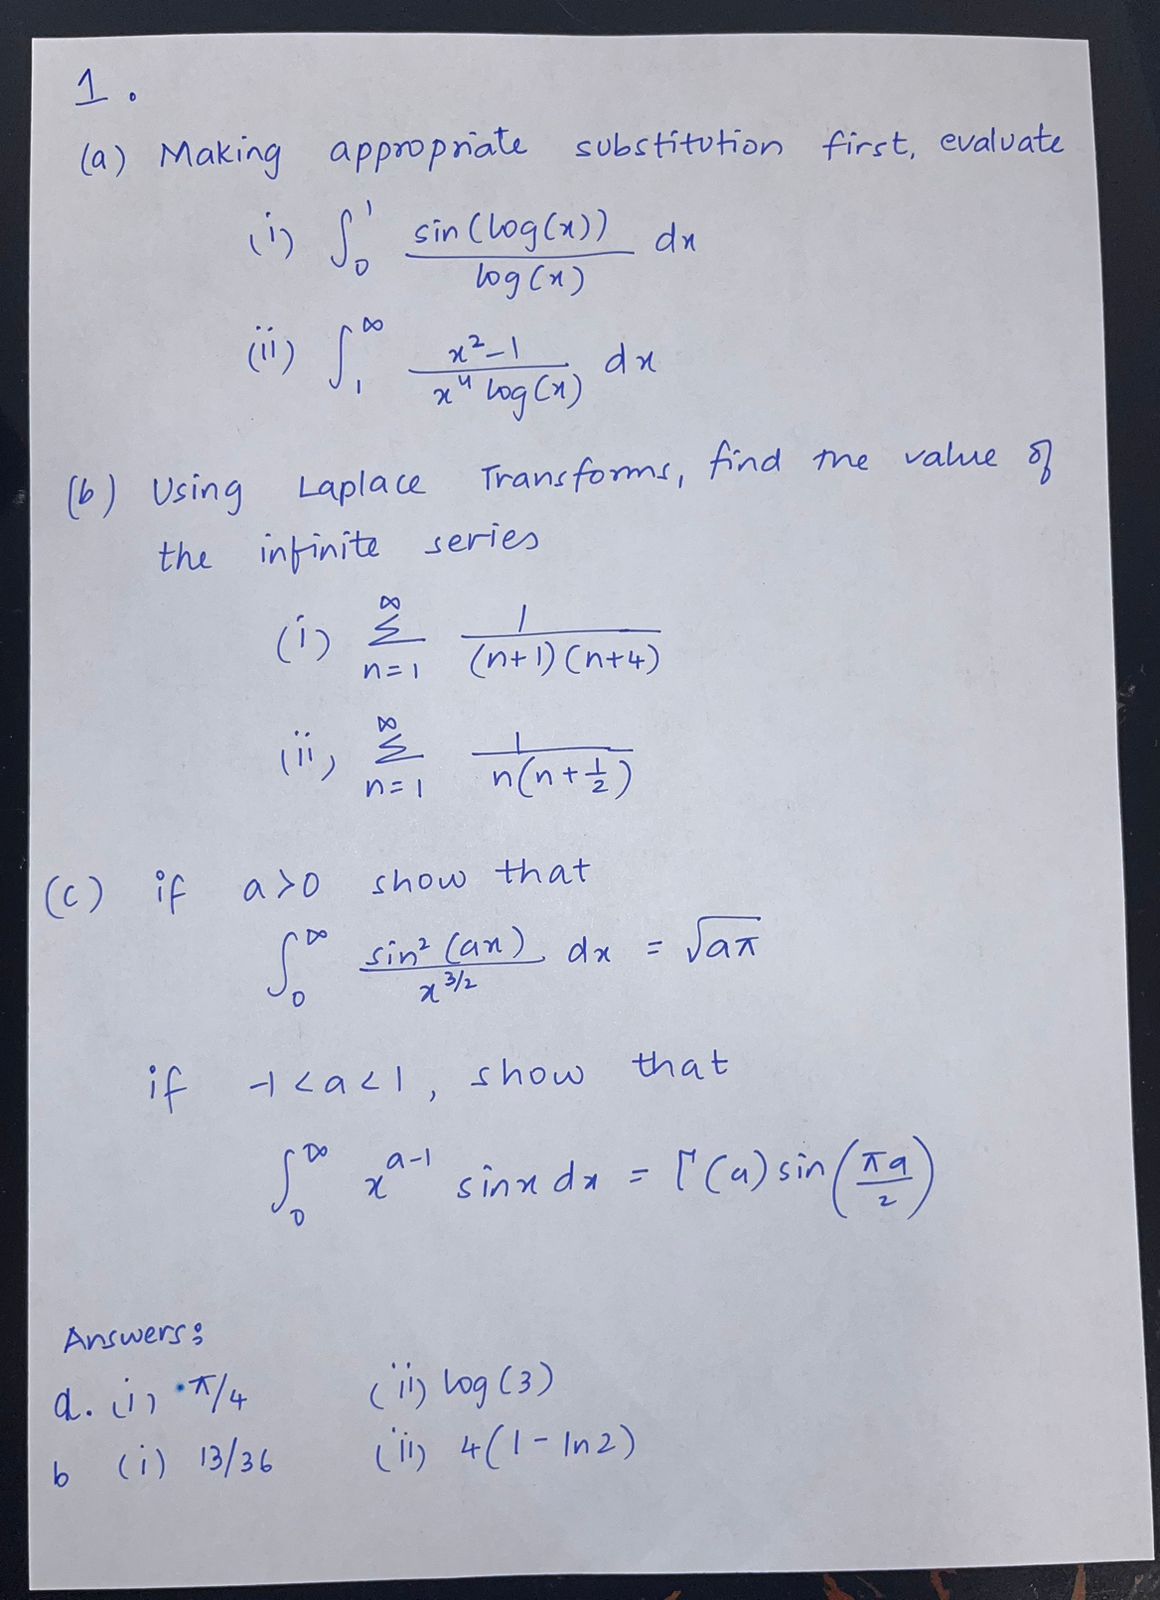 1.
(a) Making appropriate substitution first, evaluate
(i) ∫₀¹ sin(log(x)) / log(x) dx
(ii) ∫₁^∞ x²-1 / x⁴ log(x) dx
(b) Using Laplace Transforms, find the value of
the infinite series
(i) ∑_{n=1}^∞ 1 / (n+1)(n+4)
(ii) ∑_{n=1}^∞ 1 / n(n+½)
(c) if a>0 show that
∫₀^∞ sin²(ax) / x^{3/2} dx = √aπ
if -1<a<1, show that
∫₀^∞ x^{a-1} sinx dx = Γ(a) sin(πa/2)
Answers:
a. (i) π/4 (ii) log(3)
b (i) 13/36 (ii) 4(1-ln2)